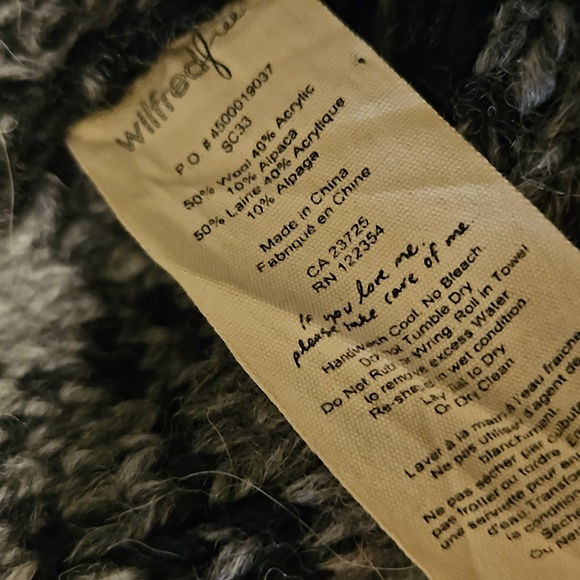 wilfredfree
PO #4500019037
SC33
50% Wool 40% Acrylic
10% Alpaca
50% Laine 40% Acrylique
10% Alpaga
Made in China
Fabriqué en Chine
CA 23725
RN 122354
if you love me.
please take care of me.
Handwash Cool. No Bleach.
Do Not Tumble Dry
Do Not Rub or Wring. Roll in Towel
to remove excess Water
Re-shape in wet condition
Lay Flat to Dry
Or Dry Clean
Laver à la main à l'eau fraîche
Ne pas utiliser d'agent de
blanchiment.
Ne pas sécher par culbut
pas frotter ou tordre.
une serviette pour
d'eau.
la condition
Ou